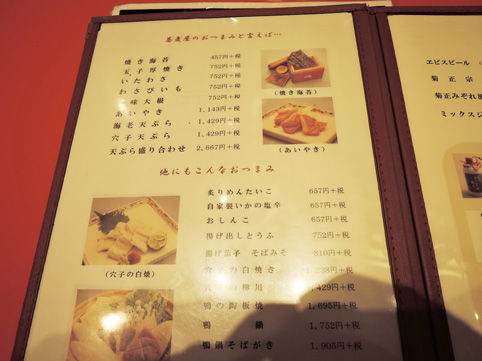 蕎麦屋のおつまみと言えば…
焼き海苔 457円+税
玉子厚焼き 752円+税
いたわさ 752円+税
わさびいも 752円+税
味大根 752円+税
あいやき 1,143円+税
海老天ぷら 1,429円+税
穴子天ぷら 1,429円+税
天ぷら盛り合わせ 2,667円+税
(焼き海苔)
(あいやき)
他にもこんなおつまみ
炙りめんたいこ 657円+税
自家製いかの塩辛 657円+税
おしんこ 657円+税
揚げ出しとうふ 752円+税
揚げ茄子 そばみそ 810円+税
穴子の白焼き 1,238円+税
穴子の柳川 1,429円+税
鴨の陶板焼 1,695円+税
鴨鍋 1,752円+税
鴨鍋そばがき 1,905円+税
(穴子の白焼)
ヱビスビール
菊正宗
菊正みぞれ酒
ミックスジ